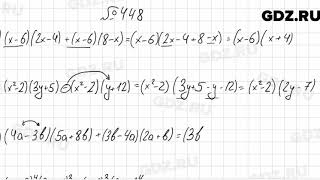 GDZ.RU
№448
(x-6)(2x-4)+(x-6)(8-x)=(x-6)(2x-4+8-x)=(x-6)(x+4)
(x²-2)(3y+5)-(x²-2)(y+12)=(x²-2)(3y+5-y-12)=(x²-2)(2y-7)
(4a-3b)(5a+8b)+(3b-4a)(2a+b)=(3b